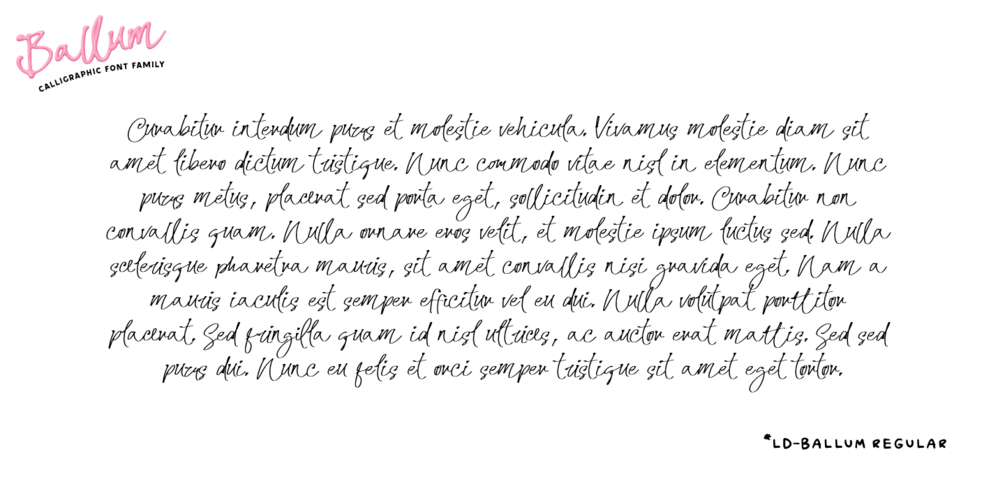 Ballum
CALLIGRAPHIC FONT FAMILY
Curabitur interdum purus et molestie vehicula. Vivamus molestie diam sit
amet libero dictum tristique. Nunc commodo vitae nisl in elementum. Nunc
purus metus, placerat sed porta eget, sollicitudin et dolor. Curabitur non
convallis quam. Nulla ornare eros velit, et molestie ipsum luctus sed. Nulla
scelerisque pharetra mauris, sit amet convallis nisi gravida eget. Nam a
mauris iaculis est semper efficitur vel eu dui. Nulla volutpat porttitor
placerat. Sed fringilla quam id nisl ultrices, ac auctor erat mattis. Sed sed
purus dui. Nunc eu felis et orci semper tristique sit amet eget tortor.
*LD-BALLUM REGULAR